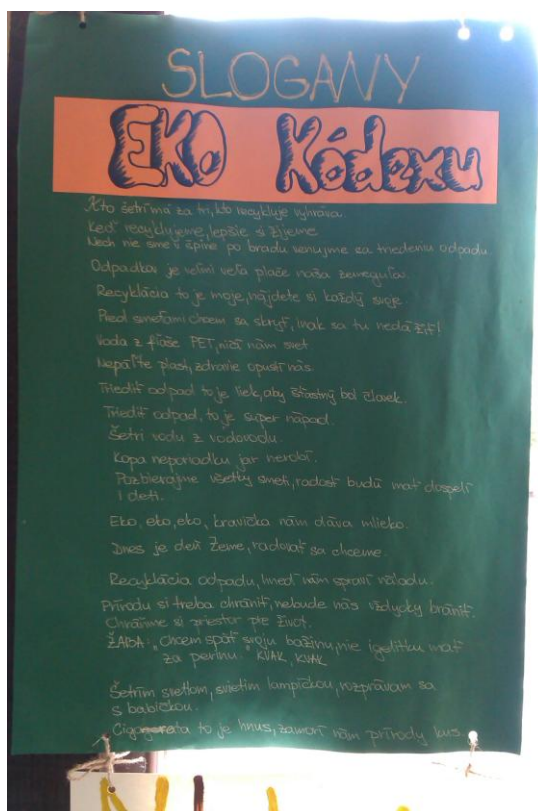 SLOGANY
EKO Kódexu
Kto šetrí má za tri, kto recykluje vyhráva.
Keď recyklujeme, lepšie si žijeme
Nech nie sme v špine po bradu venujme sa triedeniu odpadu
Odpadkov je veľmi veľa plače naša zemeguľa.
Recyklácia to je moje, nájdete si každý svoje.
Pred smeťami chcem sa skryť, inak sa tu nedá žiť!
Voda z fľaše PET, ničí nám svet
Nepáľte plast, zdravie opustí nás.
Triediť odpad to je liek, aby šťastný bol človek.
Triediť odpad, to je super nápad.
Šetri vodu z vodovodu.
Kopa neporiadku jar nerobí.
Pozbierajme všetky smeti, radosť budú mať dospelí
i deti.
Eko, eko, eko, kravička nám dáva mlieko.
Dnes je deň Zeme, radovať sa chceme.
Recyklácia odpadu, hneď nám spraví náladu.
Prírodu si treba chrániť, nebude nás vždycky brániť.
Chráňme si priestor pre život.
ŽABA: "Chcem späť svoju bažinu, nie igelitku mať
za perinu." KVAK, KVAK
Šetrím svetlom, svietim lampičkou, rozprávam sa
s babičkou.
to je hnus, zamorí nám prírody kus.